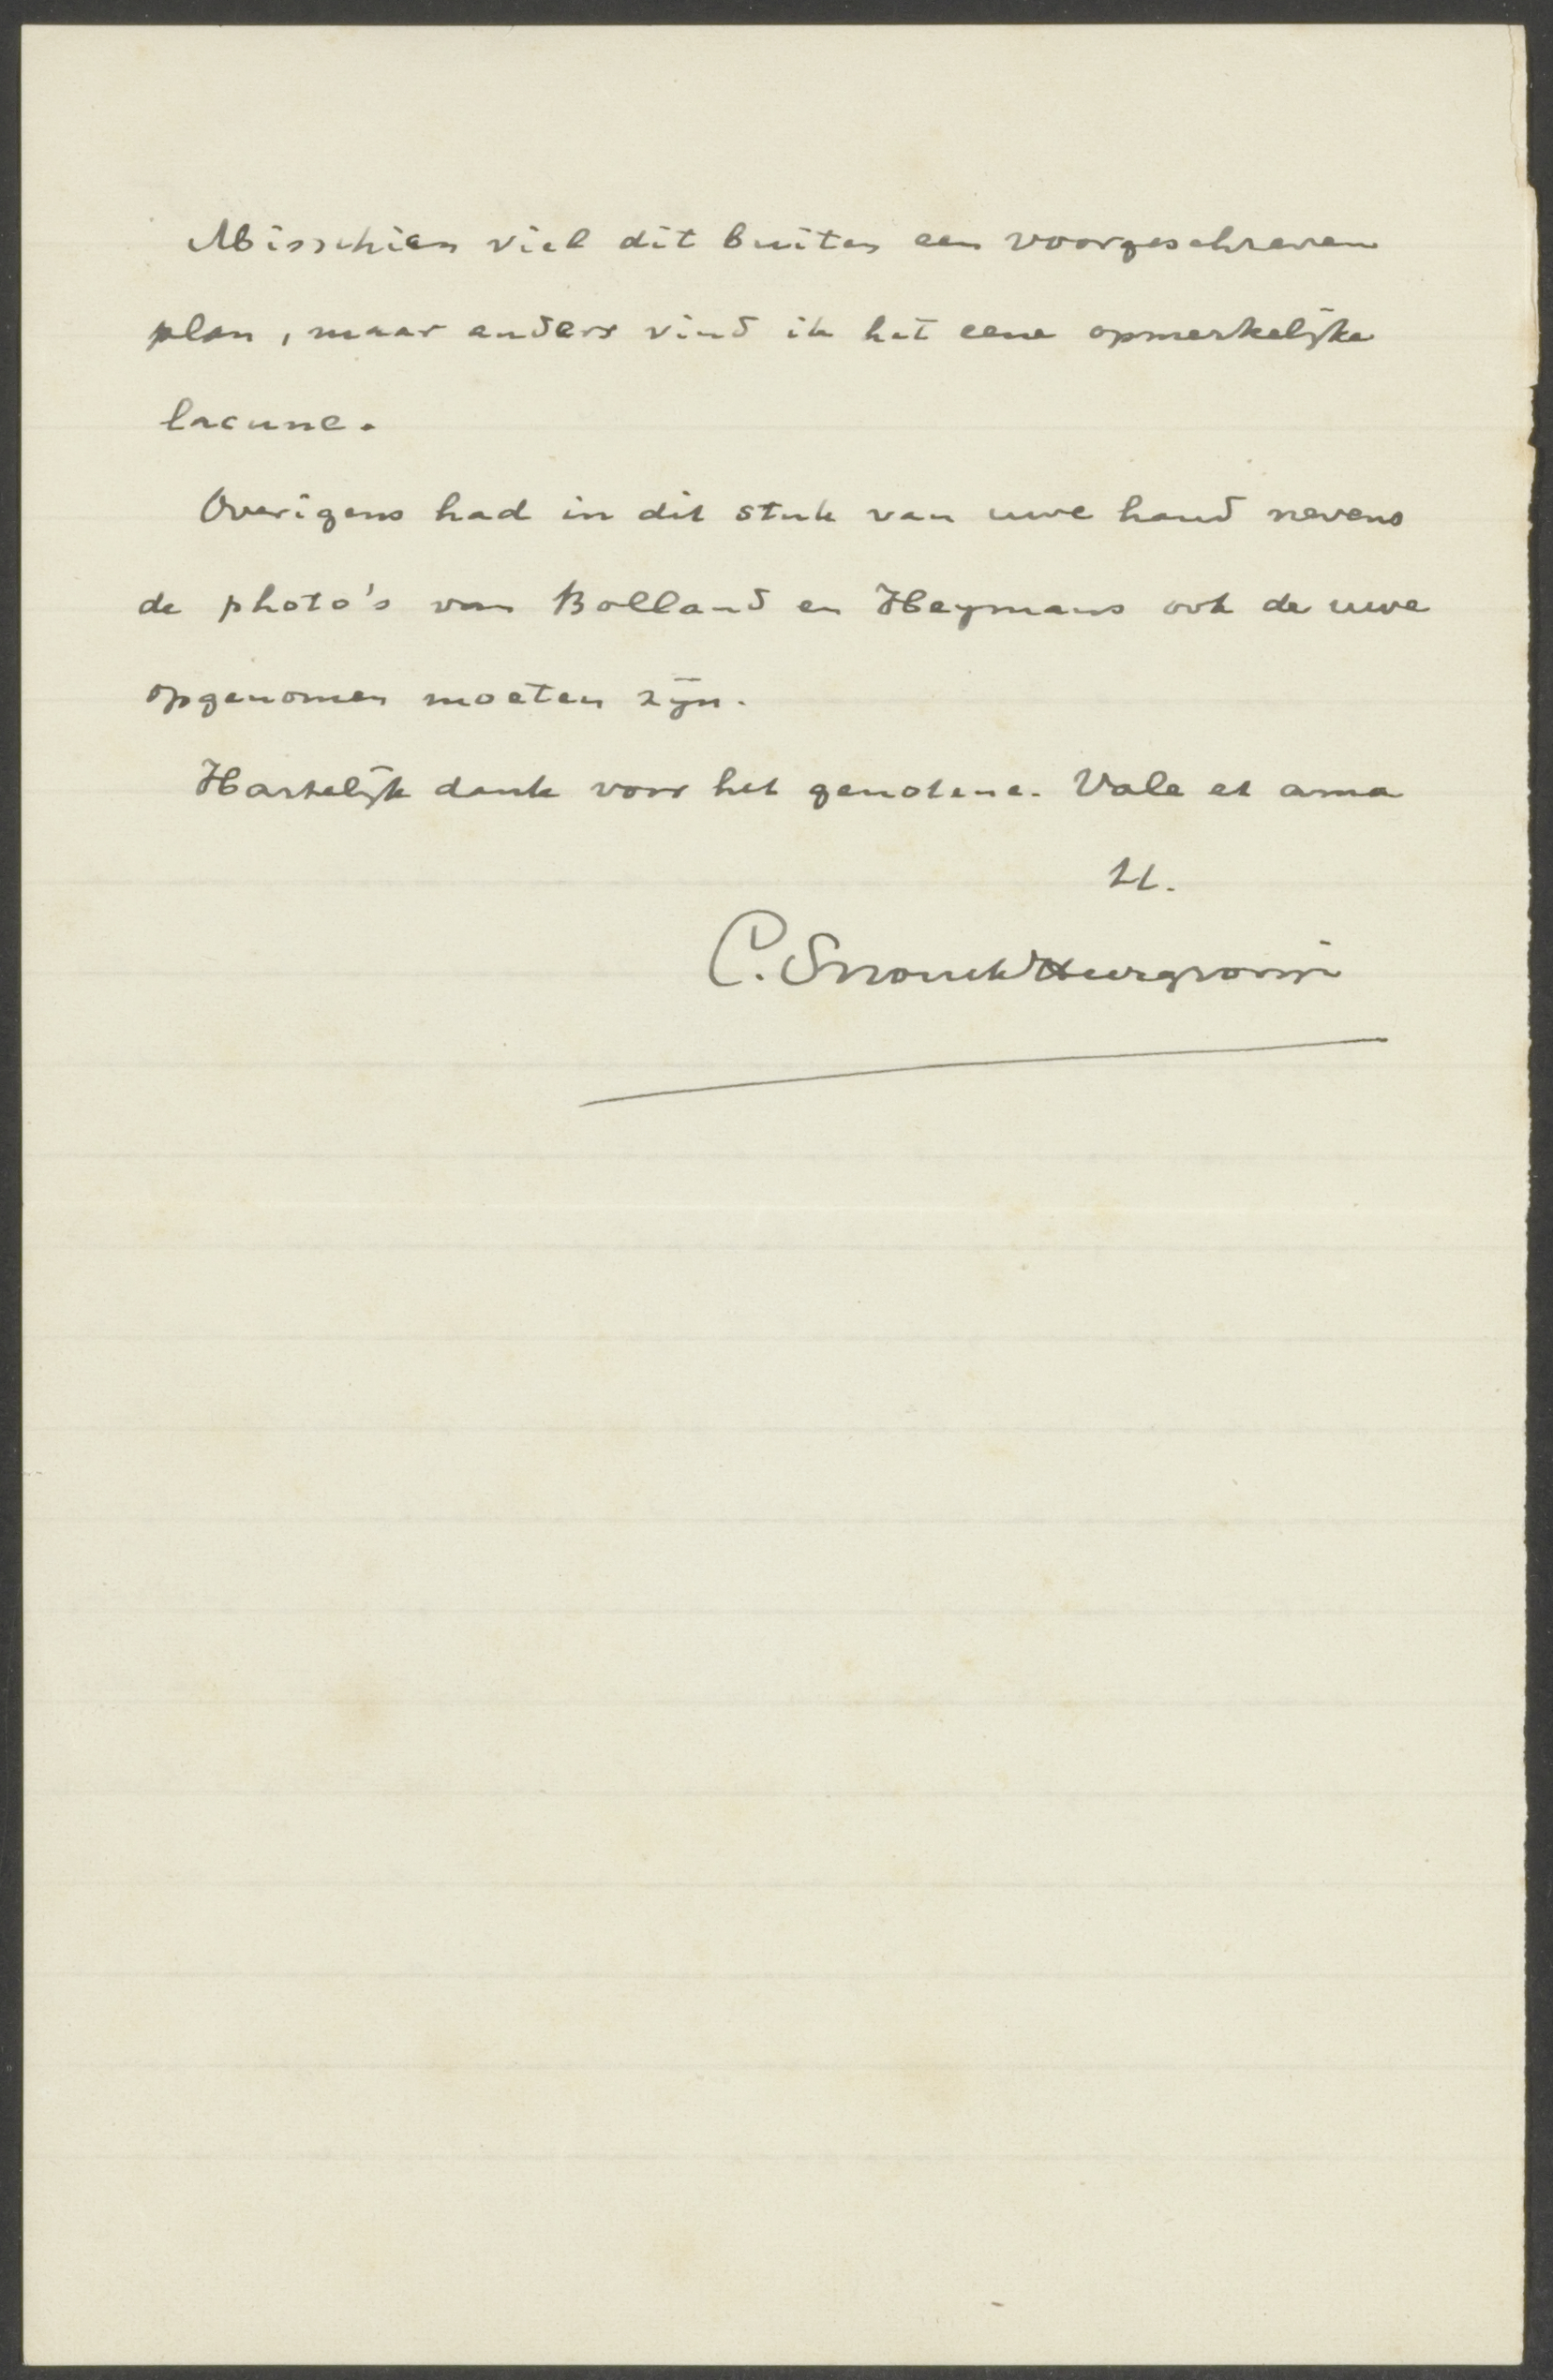 Misschien viel dit buiten een voorgeschreven
plan, maar anders vind ik het eene opmerkelijke
lacune.
Overigens had in dit stuk van uwe hand nevens
de photo's van Bolland en Heymans ook de uwe
opgenomen moeten zijn.
Hartelijk dank voor het genotene. Vale et ama
tt.
C. Snouck Hurgronje